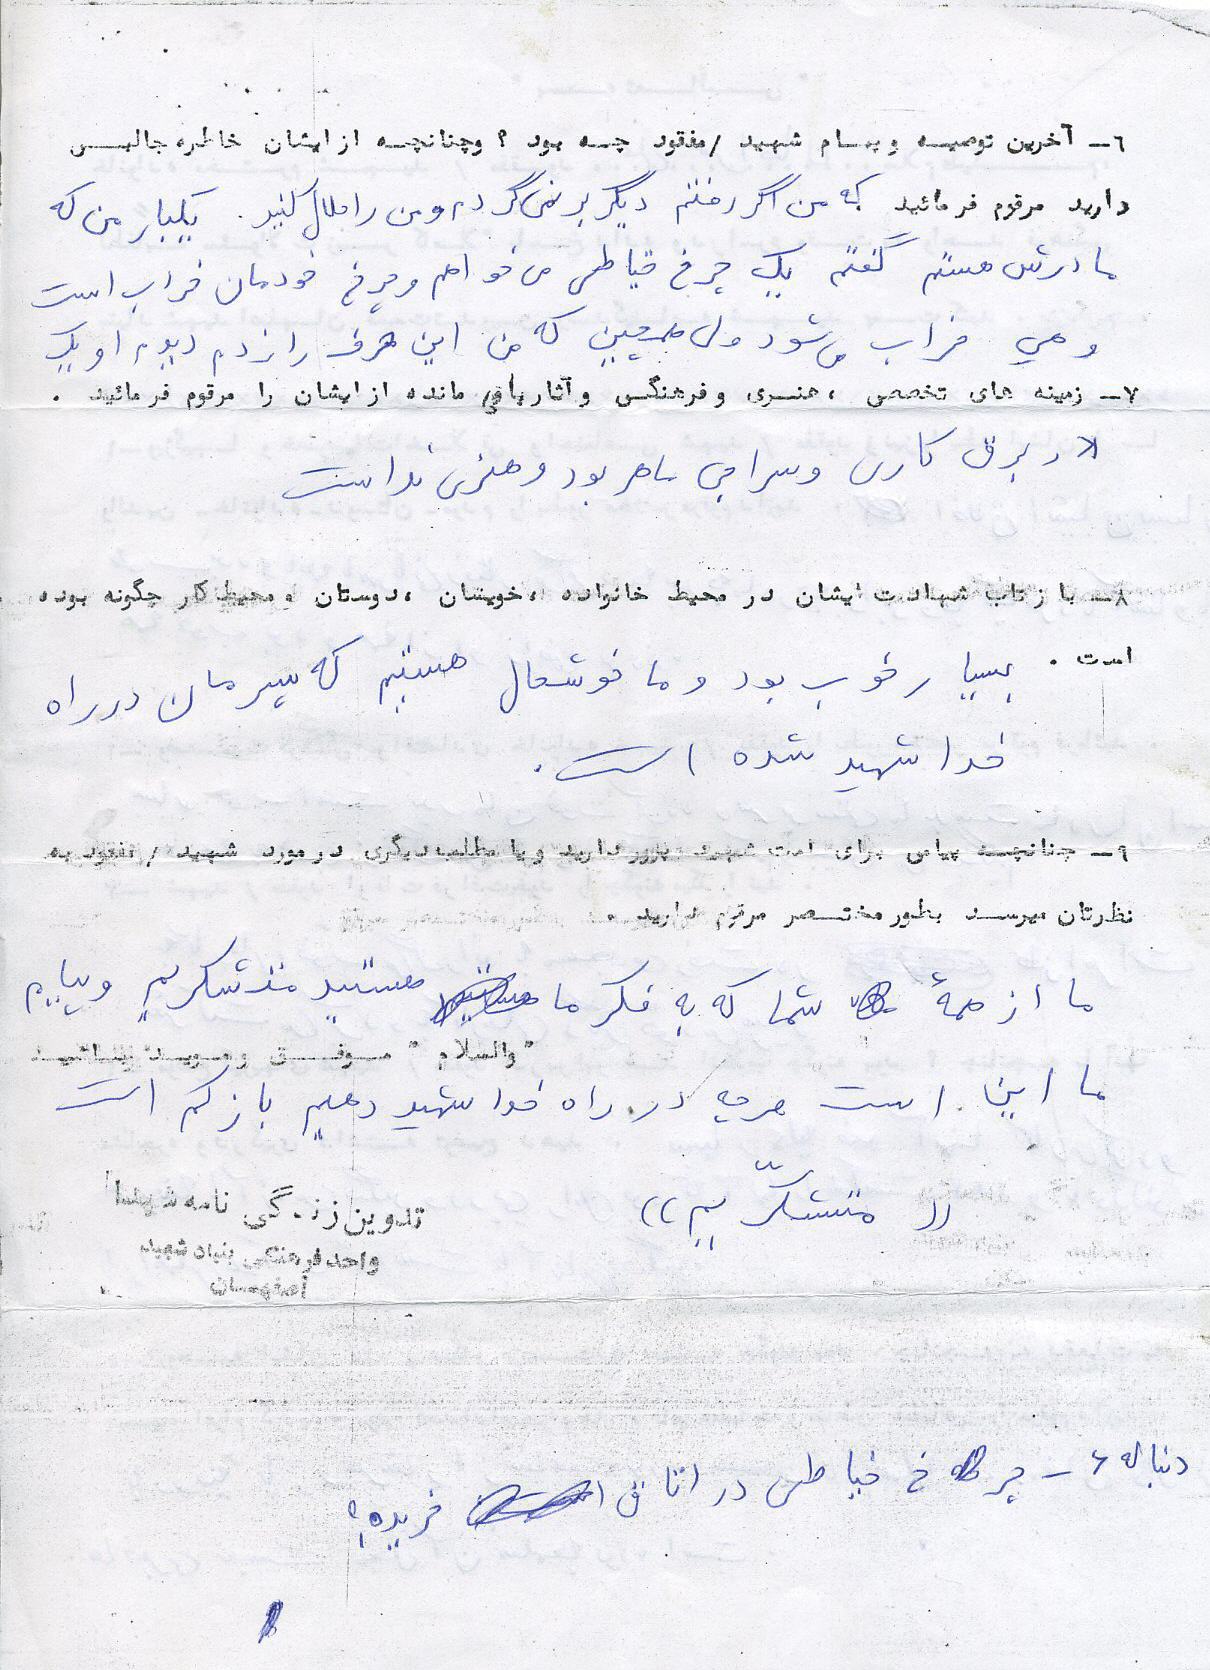 ۶ـ آخرین توصیه و پیام شهید /مفقود چه بود ؟ وچنانچه از ایشان خاطره جالبی
دارید مرقوم فرمائید که من اگر رفتم دیگر بر نمی گردم و من را حلال کنید. یکبار من که
مادرش هستم گفتم یک چرخ خیاطی می خواهم و چرخ خودمان خراب است
و هی خراب می شود ولی همین که من این حرف را زدم دیدم او یک
۷ـ زمینه های تخصصی ،هنری و فرهنگی و آثار باقی مانده از ایشان را مرقوم فرمائید .
در برق کاری و سراجی ماهر بود و هنری نداست
۸ـ بازتاب شهادت ایشان در محیط خانواده ،خویشان ،دوستان ، محیط کار چگونه بوده
است . بسیار خوب بود و ما خوشحال هستیم که پسرمان در راه
خدا شهید شده است.
۹ـ چنانچه پیامی برای امت شهید پرور دارید و یا مطلب دیگری در مورد شهید / مفقود به
نظرتان میرسد بطور مختصر مرقوم دارید .
ما از همهٔ شما که به فکر ما هستید متشکریم و پیام
"والسلام" موفق و موید باشید
ما این است هرچه در راه خدا شهید دهیم باز کم است
(( متشکّریم ))
تدوین زندگی نامه شهدا
واحد فرهنگی بنیاد شهید
اصفهان
دنباله ۶ ـ چرخ خیاطی در اتاق خریده